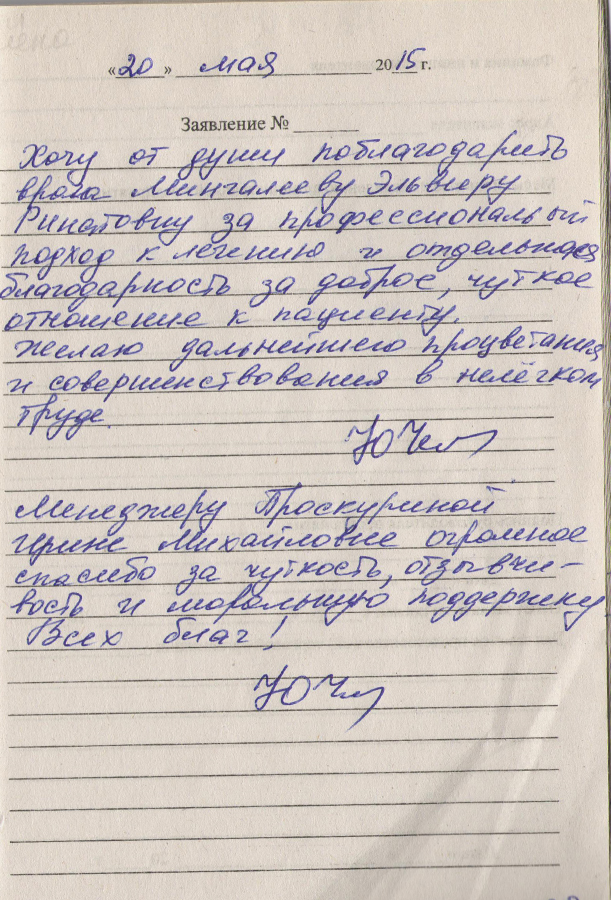 «20» мая 2015 г.
Заявление № ______
Хочу от души поблагодарить
врача Мингалееву Эльвиру
Ринатовну за профессиональный
подход к лечению и отдельная
благодарность за доброе, чуткое
отношение к пациенту.
Желаю дальнейшего процветания
и совершенствования в нелёгком
труде.
Менеджеру Проскуриной
Ирине Михайловне огромное
спасибо за чуткость, отзывчи-
вость и моральную поддержку
Всех благ!